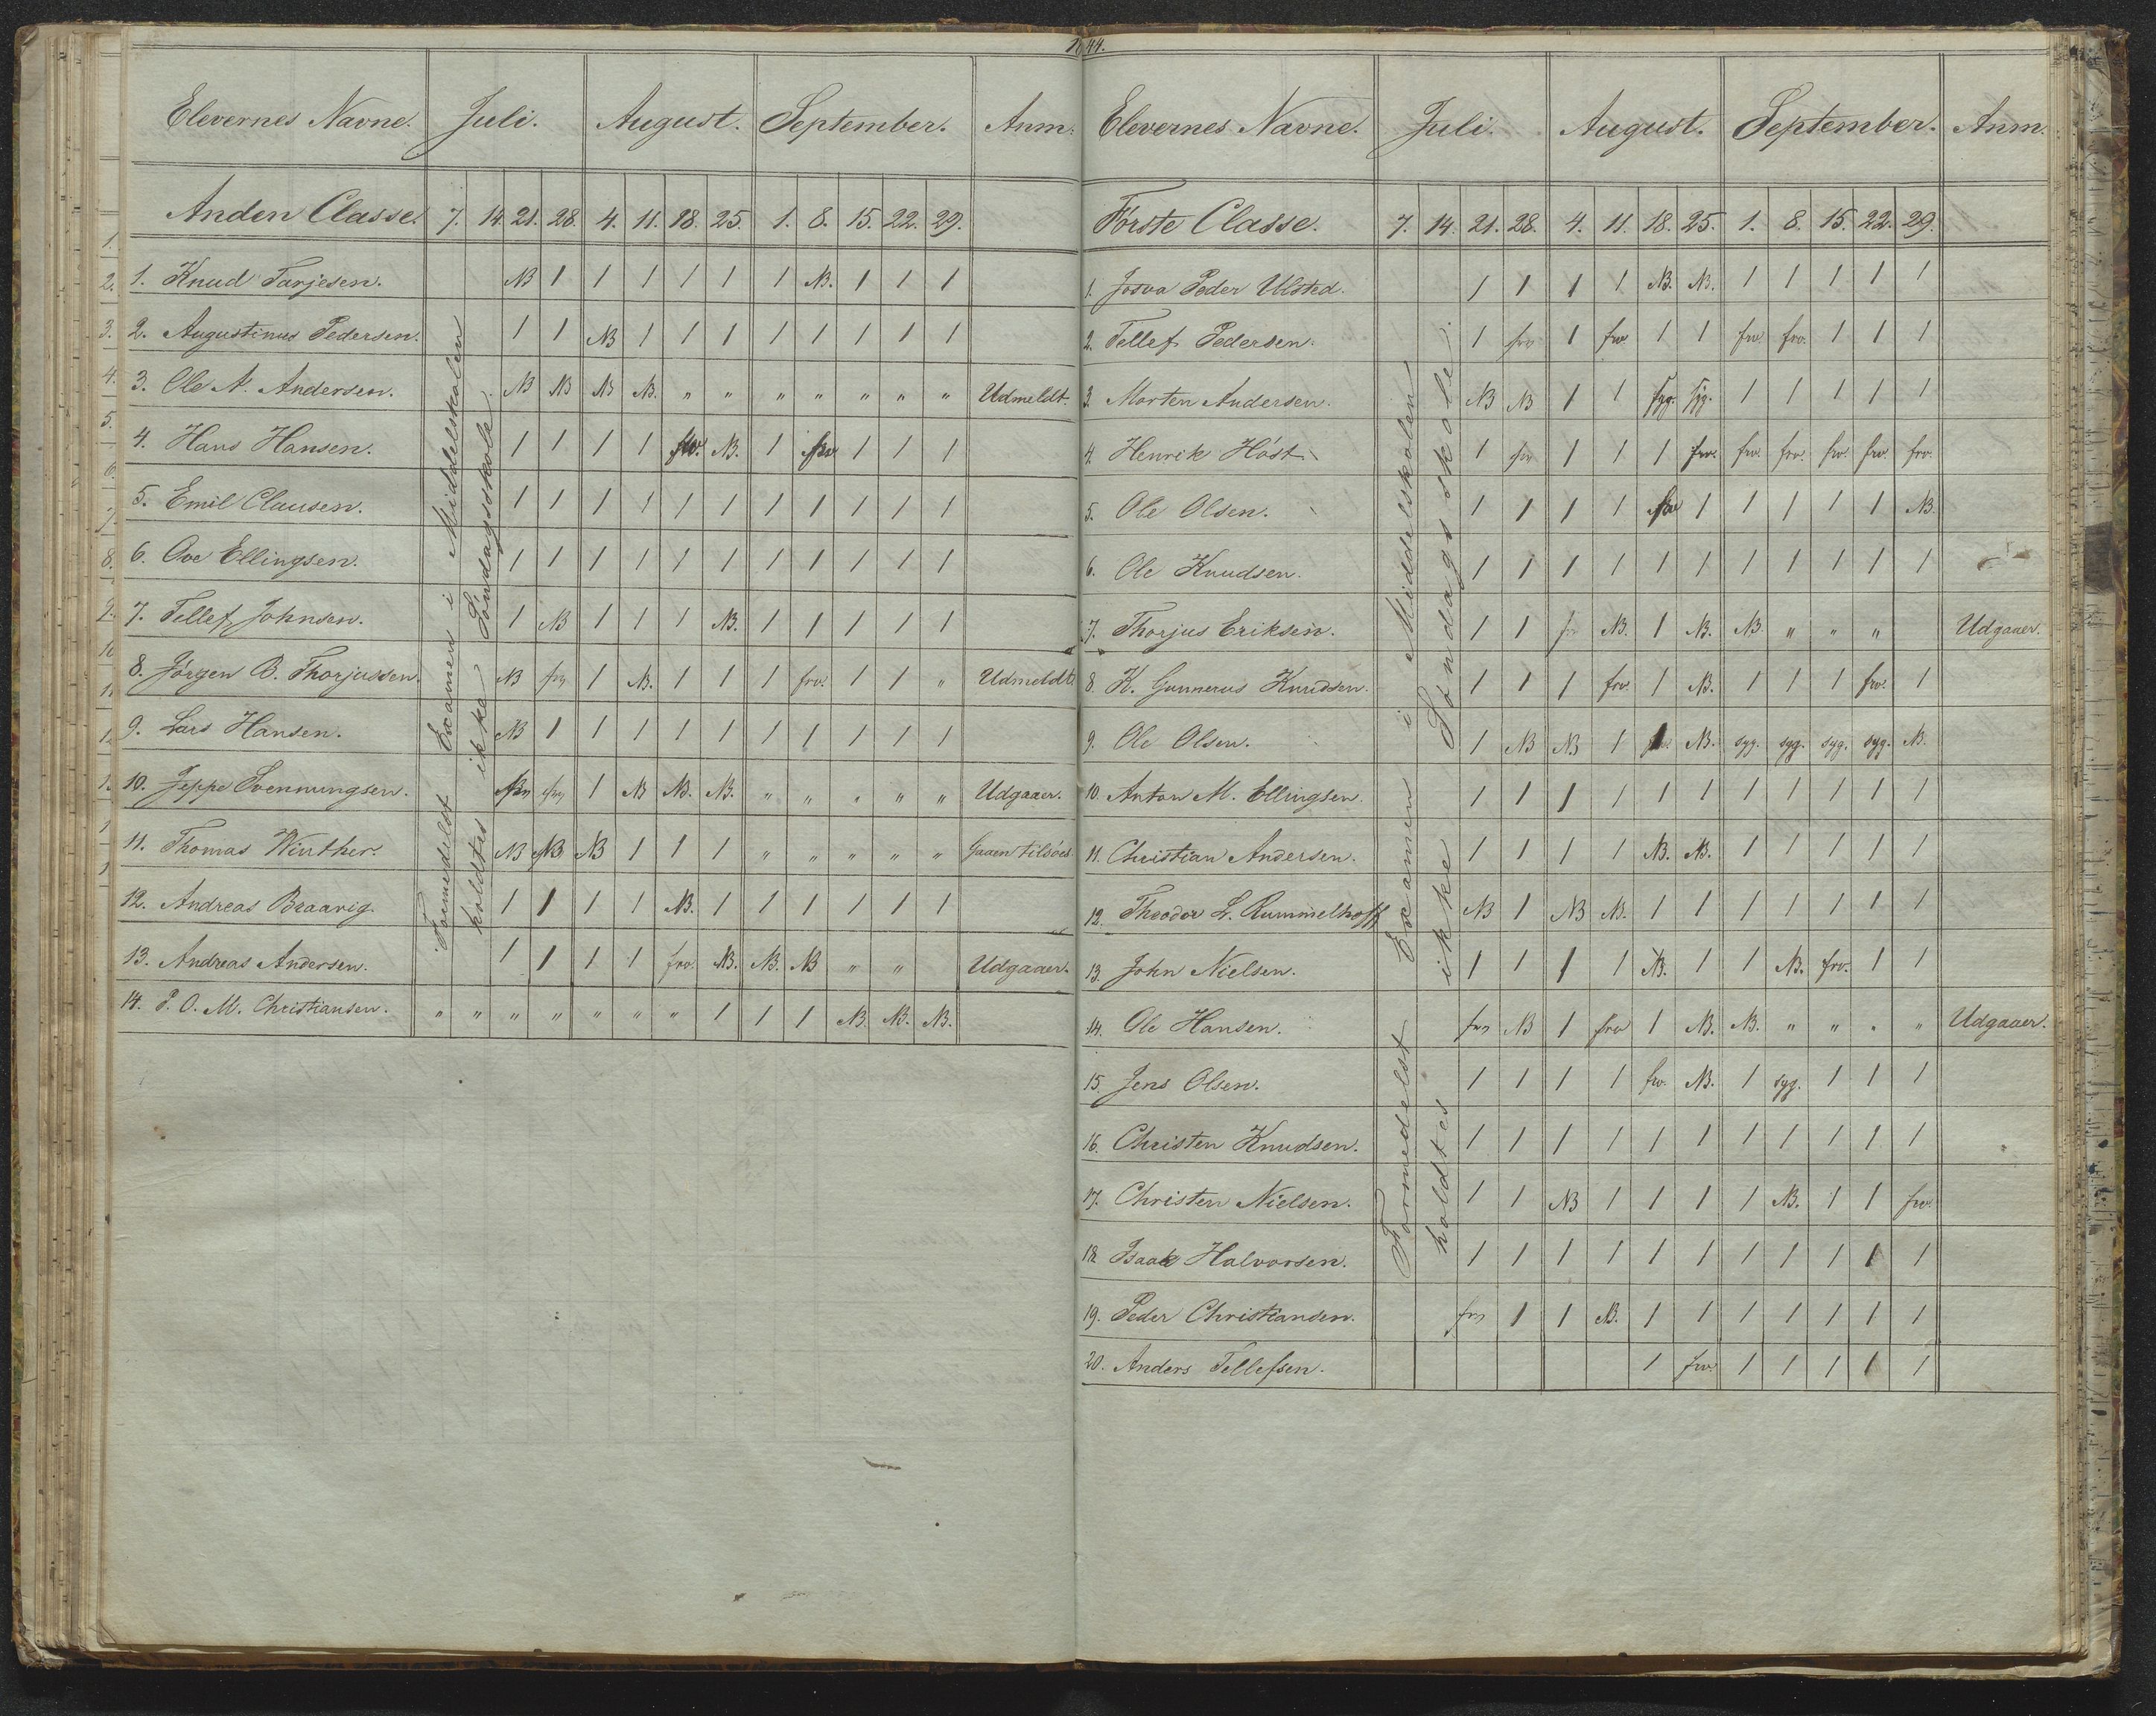 1844.
Elevernes Navne. Juli. August. September. Anm.
Anden Classe. 7. 14. 21. 28. 4. 11. 18. 25. 1. 8. 15. 22. 29.
Formedelst Examen i Middelskolen
holdtes ikke Söndagsskole
1. Knud Tarjesen. NB 1 1 1 1 1 1 NB. 1 1 1
2. Augustinus Pedersen. 1 1 NB 1 1 1 1 1 1 1 1
3. Ole N. Andersen. NB NB NB NB. " " " " " " " Udmeldt.
4. Hans Hansen. 1 1 1 1 frv. NB. 1 frv 1 1 1
5. Emil Clausen. 1 1 1 1 1 1 1 1 1 1 1
6. Ove Ellingsen. 1 1 1 1 1 1 1 1 1 1 1
7. Tellef Johnsen. 1 NB 1 1 1 NB. 1 1 1 1 1
8. Jörgen B. Thorjussen. NB frv 1 NB. 1 1 1 frv. 1 1 " Udmeldt.
9. Lars Hansen. NB 1 1 1 1 1 1 1 1 1 1
10. Jeppe Svennungsen. frv frv 1 NB NB. NB. " " " " " Udgaaer.
11. Thomas Winther. NB NB NB 1 1 1 " " " " " Gaaen tilsöes
12. Andreas Braavig. 1 1 1 1 NB. 1 1 1 1 1 1
13. Andreas Andersen. 1 1 1 1 frv. NB. NB. NB " " Udgaaer.
14. P. O. M. Christiansen. " " " " " " " 1 1 1 NB. NB. NB.
Elevernes Navne. Juli. August. September. Anm.
Förste Classe. 7. 14. 21. 28. 4. 11. 18. 25. 1. 8. 15. 22. 29.
Formedelst Examen i Middelskolen
holdtes ikke Söndagsskole.
1. Josva Peder Ulsted. 1 1 1 1 NB. NB. 1 1 1 1 1
2. Tellef Pedersen. 1 frv 1 frv. 1 1 frv. frv. 1 1 1
3. Morten Andersen. NB NB 1 1 syg. syg. 1 1 1 1 1
4. Henrik Höst. 1 frv 1 1 1 frv. frv. frv. frv. frv. frv.
5. Ole Olsen. 1 1 1 1 frv 1 1 1 1 1 NB.
6. Ole Knudsen. 1 1 1 1 1 1 1 1 1 1 1
7. Thorjus Eriksen. 1 1 frv NB. 1 NB. NB. " " " Udgaaer.
8. K. Gunnerus Knudsen. 1 1 1 frv. 1 NB. 1 1 1 frv. 1
9. Ole Olsen. 1 NB NB 1 1 NB. syg. syg. syg. syg. NB.
10. Anton M. Ellingsen. 1 1 1 1 1 1 1 1 1 1 1
11. Christian Andersen. 1 1 1 1 NB. NB. 1 1 1 1 1
12. Theodor L. Rummelhoff NB 1 NB NB. 1 1 1 1 1 1 1
13. John Nielsen. 1 1 1 1 NB. 1 1 NB. frv. 1 1
14. Ole Hansen. frv NB 1 frv 1 NB. NB. " " " " Udgaaer.
15. Jens Olsen. 1 1 1 1 frv. NB. 1 syg. 1 1 1
16. Christen Knudsen. 1 1 1 1 1 1 1 1 1 1 1
17. Christen Nielsen. 1 1 NB 1 1 1 1 NB. 1 1 frv.
18. Isaak Halvorsen. 1 1 1 1 1 1 1 1 1 1 1
19. Peder Christiansen. frv 1 1 NB. 1 1 1 1 1 1 1
20. Anders Tellefsen. 1 frv. 1 1 1 1 1